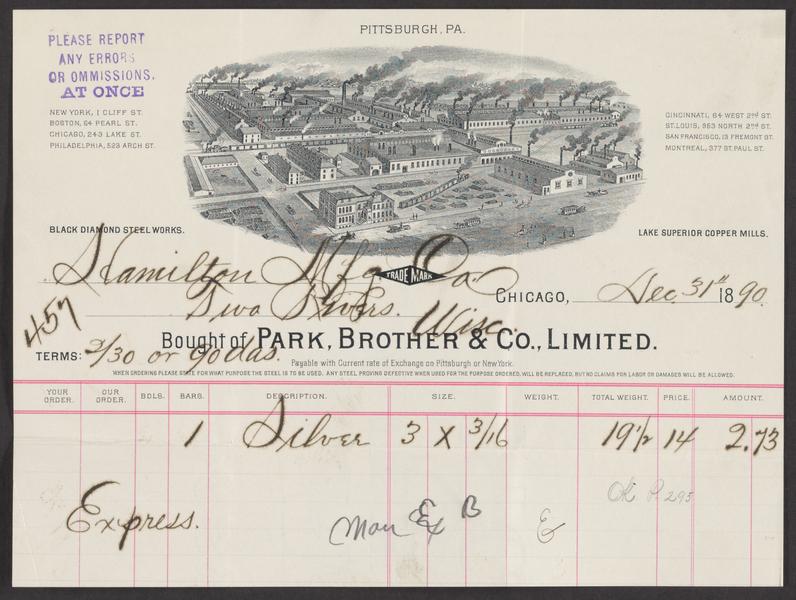 PITTSBURGH, PA.
PLEASE REPORT
ANY ERRORS
OR OMMISSIONS,
AT ONCE
NEW YORK, 1 CLIFF ST.
BOSTON, 64 PEARL ST.
CHICAGO, 243 LAKE ST.
PHILADELPHIA, 523 ARCH ST.
CINCINNATI, 64 WEST 2nd ST.
ST. LOUIS, 953 NORTH 2nd ST.
SAN FRANCISCO, 13 FREMONT ST.
MONTREAL, 377 ST. PAUL ST.
BLACK DIAMOND STEEL WORKS.
LAKE SUPERIOR COPPER MILLS.
Hamilton Mfg Co.
TRADE MARK
CHICAGO, Dec. 31" 1890.
Two Rivers. Wisc.
457
Bought of PARK, BROTHER & CO., LIMITED.
TERMS: 2/30 or 90 das.
Payable with Current rate of Exchange on Pittsburgh or New York.
WHEN ORDERING PLEASE STATE FOR WHAT PURPOSE THE STEEL IS TO BE USED. ANY STEEL PROVING DEFECTIVE WHEN USED FOR THE PURPOSE ORDERED, WILL BE REPLACED, BUT NO CLAIMS FOR LABOR OR DAMAGES WILL BE ALLOWED.
YOUR ORDER. OUR ORDER. BDLS. BARS. DESCRIPTION. SIZE. WEIGHT. TOTAL WEIGHT. PRICE. AMOUNT.
1 Silver 3 X 3/16 19 1/2 14 2.73
Ok P. 295
Express.
Ex B
&